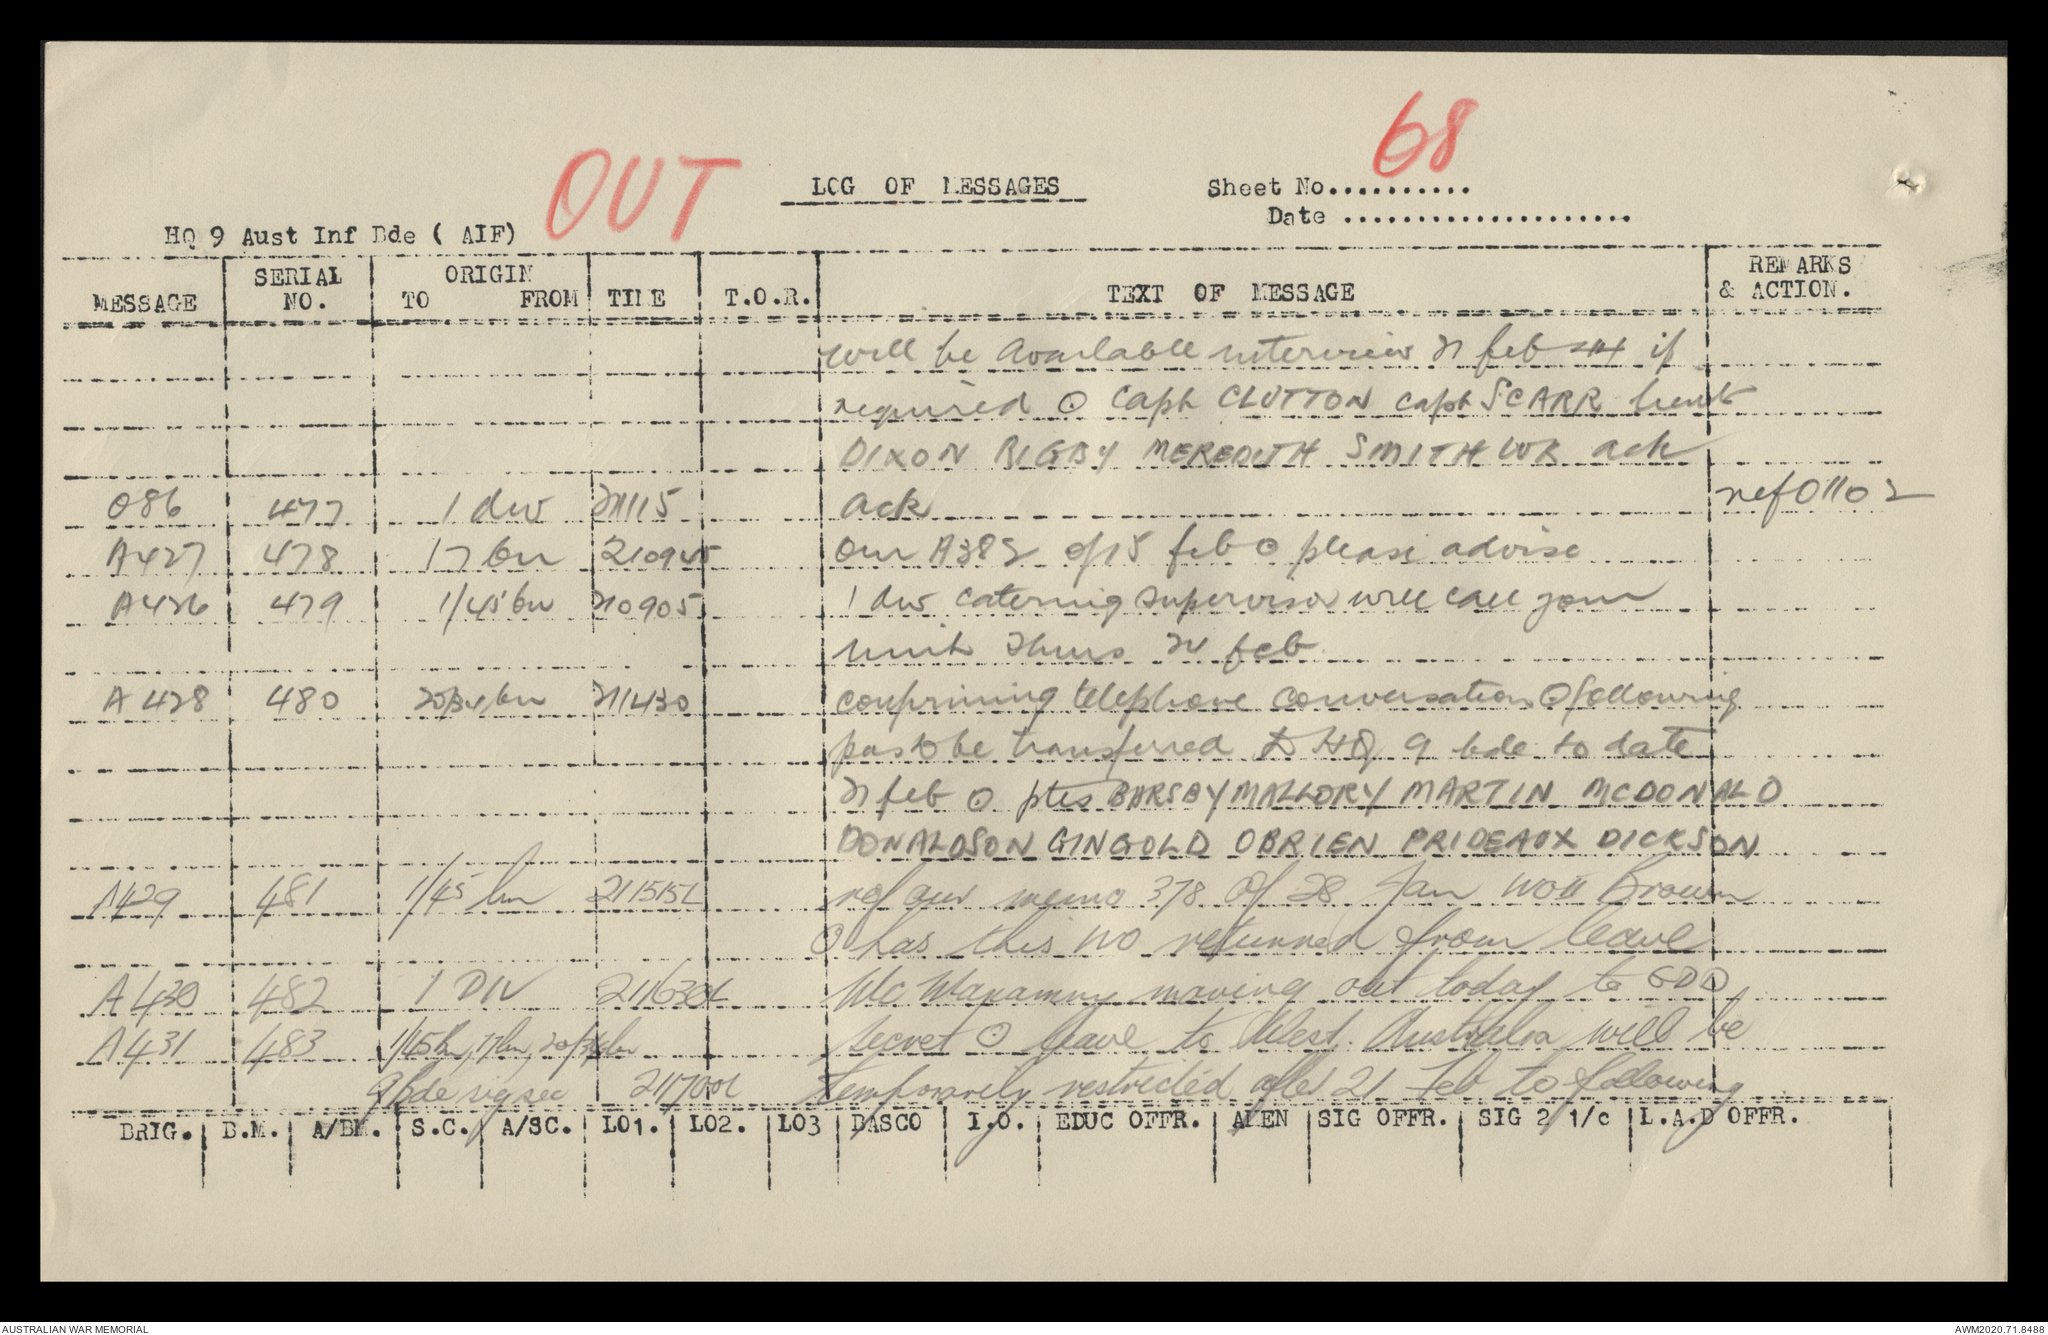 OUT
68
LOG OF MESSAGES
Sheet No..........
Date ....................
HQ 9 Aust Inf Bde ( AIF)
MESSAGE SERIAL NO. ORIGIN TO FROM TIME T.O.R. TEXT OF MESSAGE REMARKS & ACTION.
will be available interview 21 feb if
required ⊙ Capt CLUTTON capt SCARR lieut
DIXON RIGBY MEREDITH SMITH WR ack
O86 477 1 div 21115 ack ref O1102
A427 478 17 bn 210945 our A382 of 15 feb ⊙ please advise
A426 479 1/45 bn 210905 1 div catering supervisor will call your
unit Thurs 24 feb
A428 480 20/34 bn 211430 confirming telephone conversation ⊙ following
to be transferred to HQ 9 bde to date
21 feb ⊙ ptes BARSBY MALLORY MARTIN MCDONALD
DONALDSON GINGOLD OBRIEN PRIDEAUX DICKSON
A429 481 1/45 bn 211515L ref our memo 378 of 28 Jan WOII Brown
⊙ has this WO returned from leave
A430 482 1 DIV 211630L moving out today to GDD
A431 483 1/45 bn, 17 bn, 20/34 bn secret ⊙ leave to West Australia will be
9 bde sig sec 211700L temporarily restricted after 21 Feb to following
BRIG. B.M. A/BM. S.C. A/SC. LO1. LO2. LO3 BASCO I.O. EDUC OFFR. AMEN SIG OFFR. SIG 2 1/c L.A.D OFFR.
AUSTRALIAN WAR MEMORIAL
AWM2020.71.8488